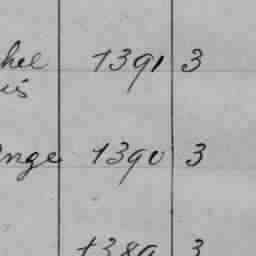 hel 1391 3
is
nge 1390 3
1389 3